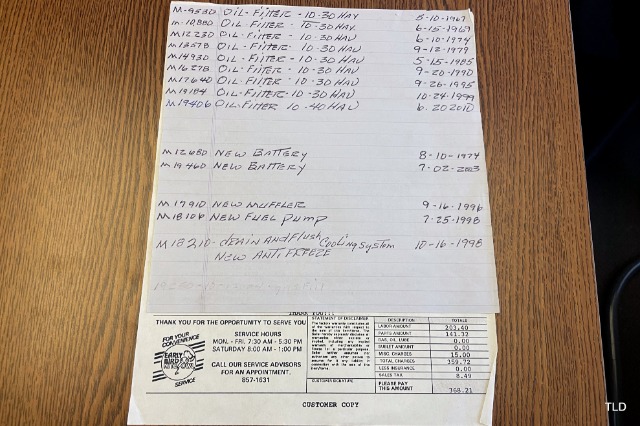 M-9530 OIL-FILTER-10-30 HAV 5-10-1967
M-10,880 OIL FILTER-10-30 HAV 6-15-1969
M12230 OIL FILTER-10-30 HAV 6-10-1974
M13578 OIL-FILTER-10-30 HAV 9-12-1979
M14930 OIL FILTER-10-30 HAV 5-15-1985
M16278 OIL-FILTER-10-30 HAV 9-20-1990
M17640 OIL-FILTER-10-30 HAV 9-26-1995
M19184 OIL-FILTER-10-30 HAV 10-24-1999
M19406 OIL FILTER 10-40 HAV 6-20 2010
M12680 NEW BATTERY 8-10-1974
M19460 NEW BATTERY 7-02-2003
M17910 NEW MUFFLER 9-16-1996
M18106 NEW FUEL PUMP 7-25-1998
M18210-DRAIN AND FLUSH COOLING SYSTEM 10-16-1998
NEW ANTIFREEZE
THANK YOU FOR THE OPPORTUNITY TO SERVE YOU
FOR YOUR CONVENIENCE
EARLY BIRD
SERVICE
SERVICE HOURS
MON. - FRI. 7:30 AM - 5:30 PM
SATURDAY 8:00 AM - 1:00 PM
CALL OUR SERVICE ADVISORS
FOR AN APPOINTMENT.
857-1631
STATEMENT OF DISCLAIMER
CUSTOMER SIGNATURE
DESCRIPTION TOTALS
LABOR AMOUNT 203.40
PARTS AMOUNT 141.32
GAS, OIL, LUBE 0.00
SUBLET AMOUNT 0.00
MISC. CHARGES 15.00
TOTAL CHARGES 359.72
LESS INSURANCE 0.00
SALES TAX 8.49
PLEASE PAY
THIS AMOUNT 368.21
CUSTOMER COPY
TLD